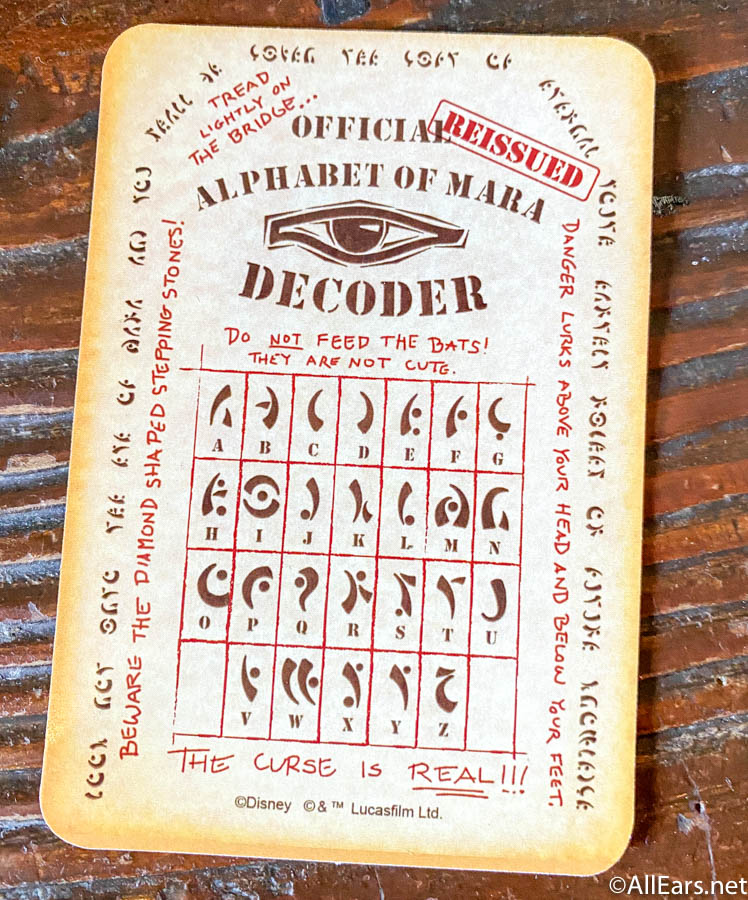 TREAD
LIGHTLY ON
THE BRIDGE...
OFFICIAL
REISSUED
ALPHABET OF MARA
DECODER
DO NOT FEED THE BATS!
THEY ARE NOT CUTE.
BEWARE THE DIAMOND SHAPED STEPPING STONES!
DANGER LURKS ABOVE YOUR HEAD AND BELOW YOUR FEET.
A B C D E F G
H I J K L M N
O P Q R S T U
V W X Y Z
THE CURSE IS REAL!!!
©Disney ©&™ Lucasfilm Ltd.
©AllEars.net